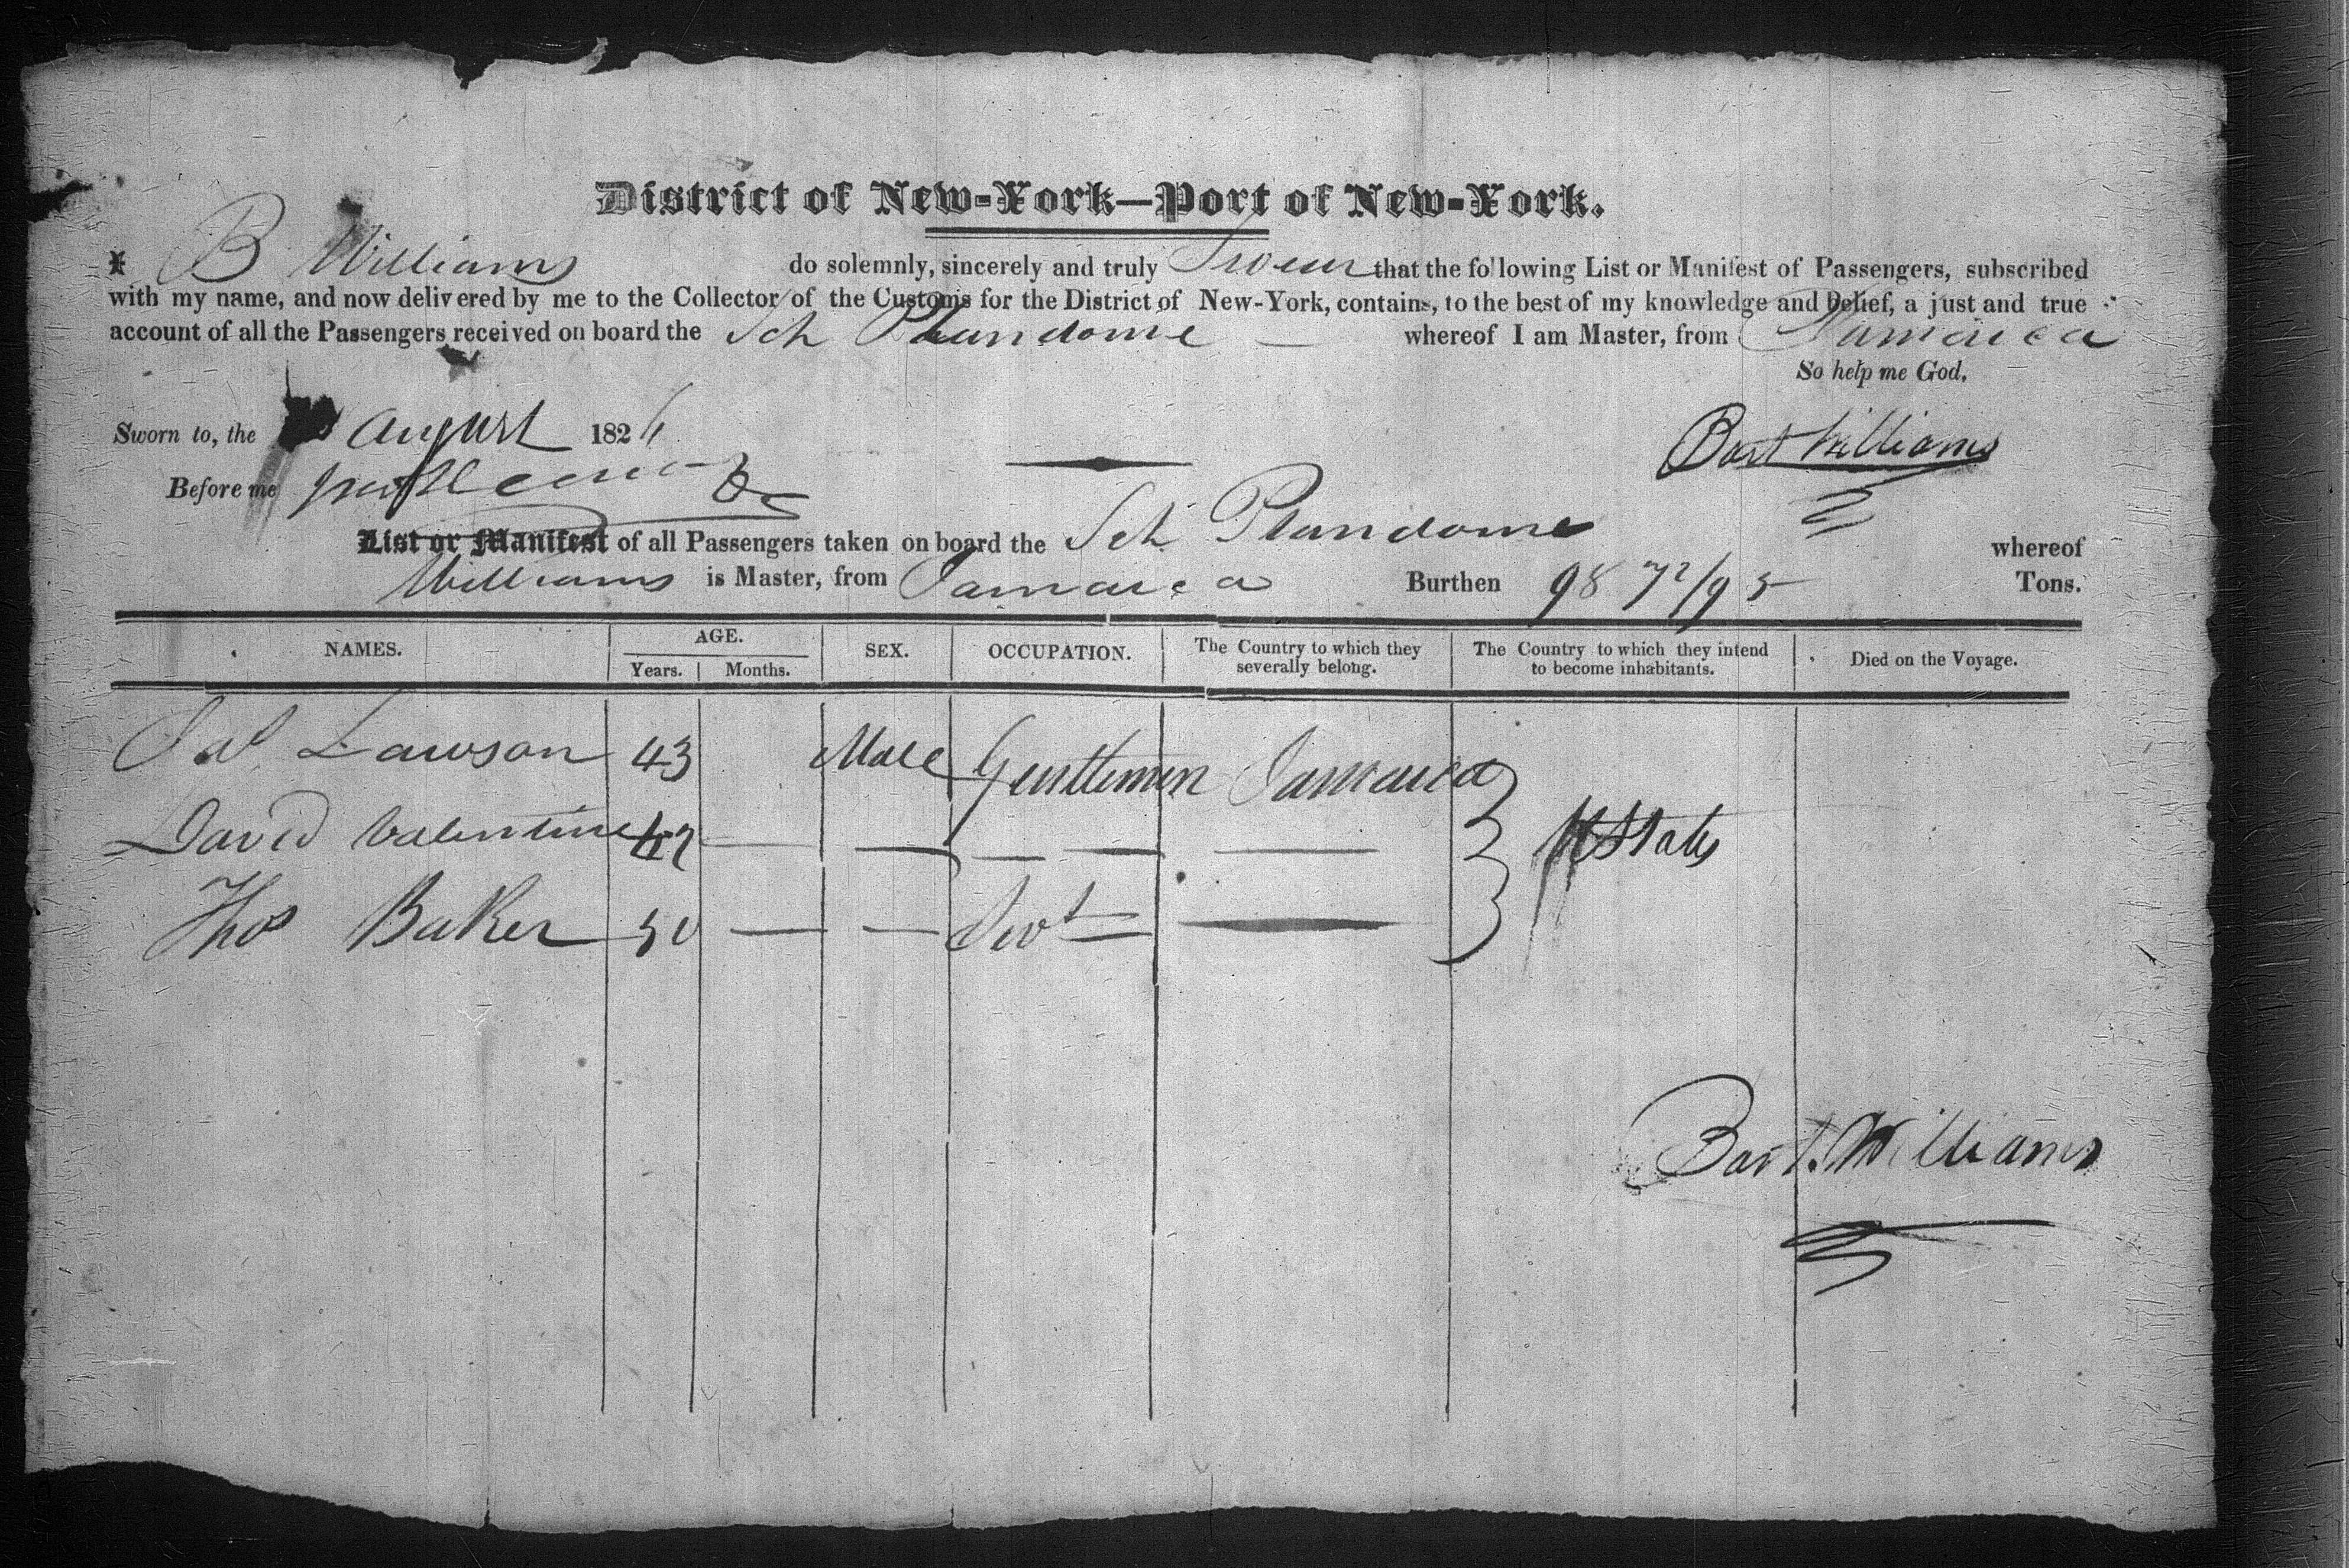 District of New-York—Port of New-York.
I B Williams do solemnly, sincerely and truly Swear that the following List or Manifest of Passengers, subscribed
with my name, and now delivered by me to the Collector of the Customs for the District of New-York, contains, to the best of my knowledge and belief, a just and true
account of all the Passengers received on board the Sch Plandome whereof I am Master, from Jamaica
So help me God,
Sworn to, the August 1826
Bart Williams
Before me
List or Manifest of all Passengers taken on board the Sch Plandome whereof
Williams is Master, from Jamaica Burthen 98 72/95 Tons.
NAMES. AGE. Years. Months. SEX. OCCUPATION. The Country to which they severally belong. The Country to which they intend to become inhabitants. Died on the Voyage.
Lawson 43 Male Gentleman Jamaica
David Valentine 47 — — — — — U States
Thos Baker 50 — — Servt —
Bart. Williams